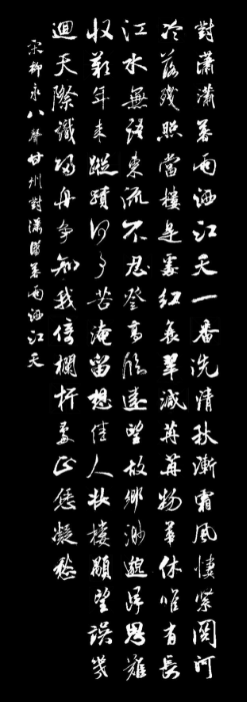 對瀟瀟暮雨洒江天一番洗清秋漸霜風悽緊関河
冷落殘照當樓是處紅衰翠減苒苒物華休唯有長
江水無語東流不忍登高臨遠望故鄉渺邈歸思難
收歎年來蹤跡何事苦淹留想佳人妝樓顒望誤幾
迴天際識歸舟爭知我倚欄杆處正恁凝愁
宋柳永八聲甘州對瀟瀟暮雨洒江天